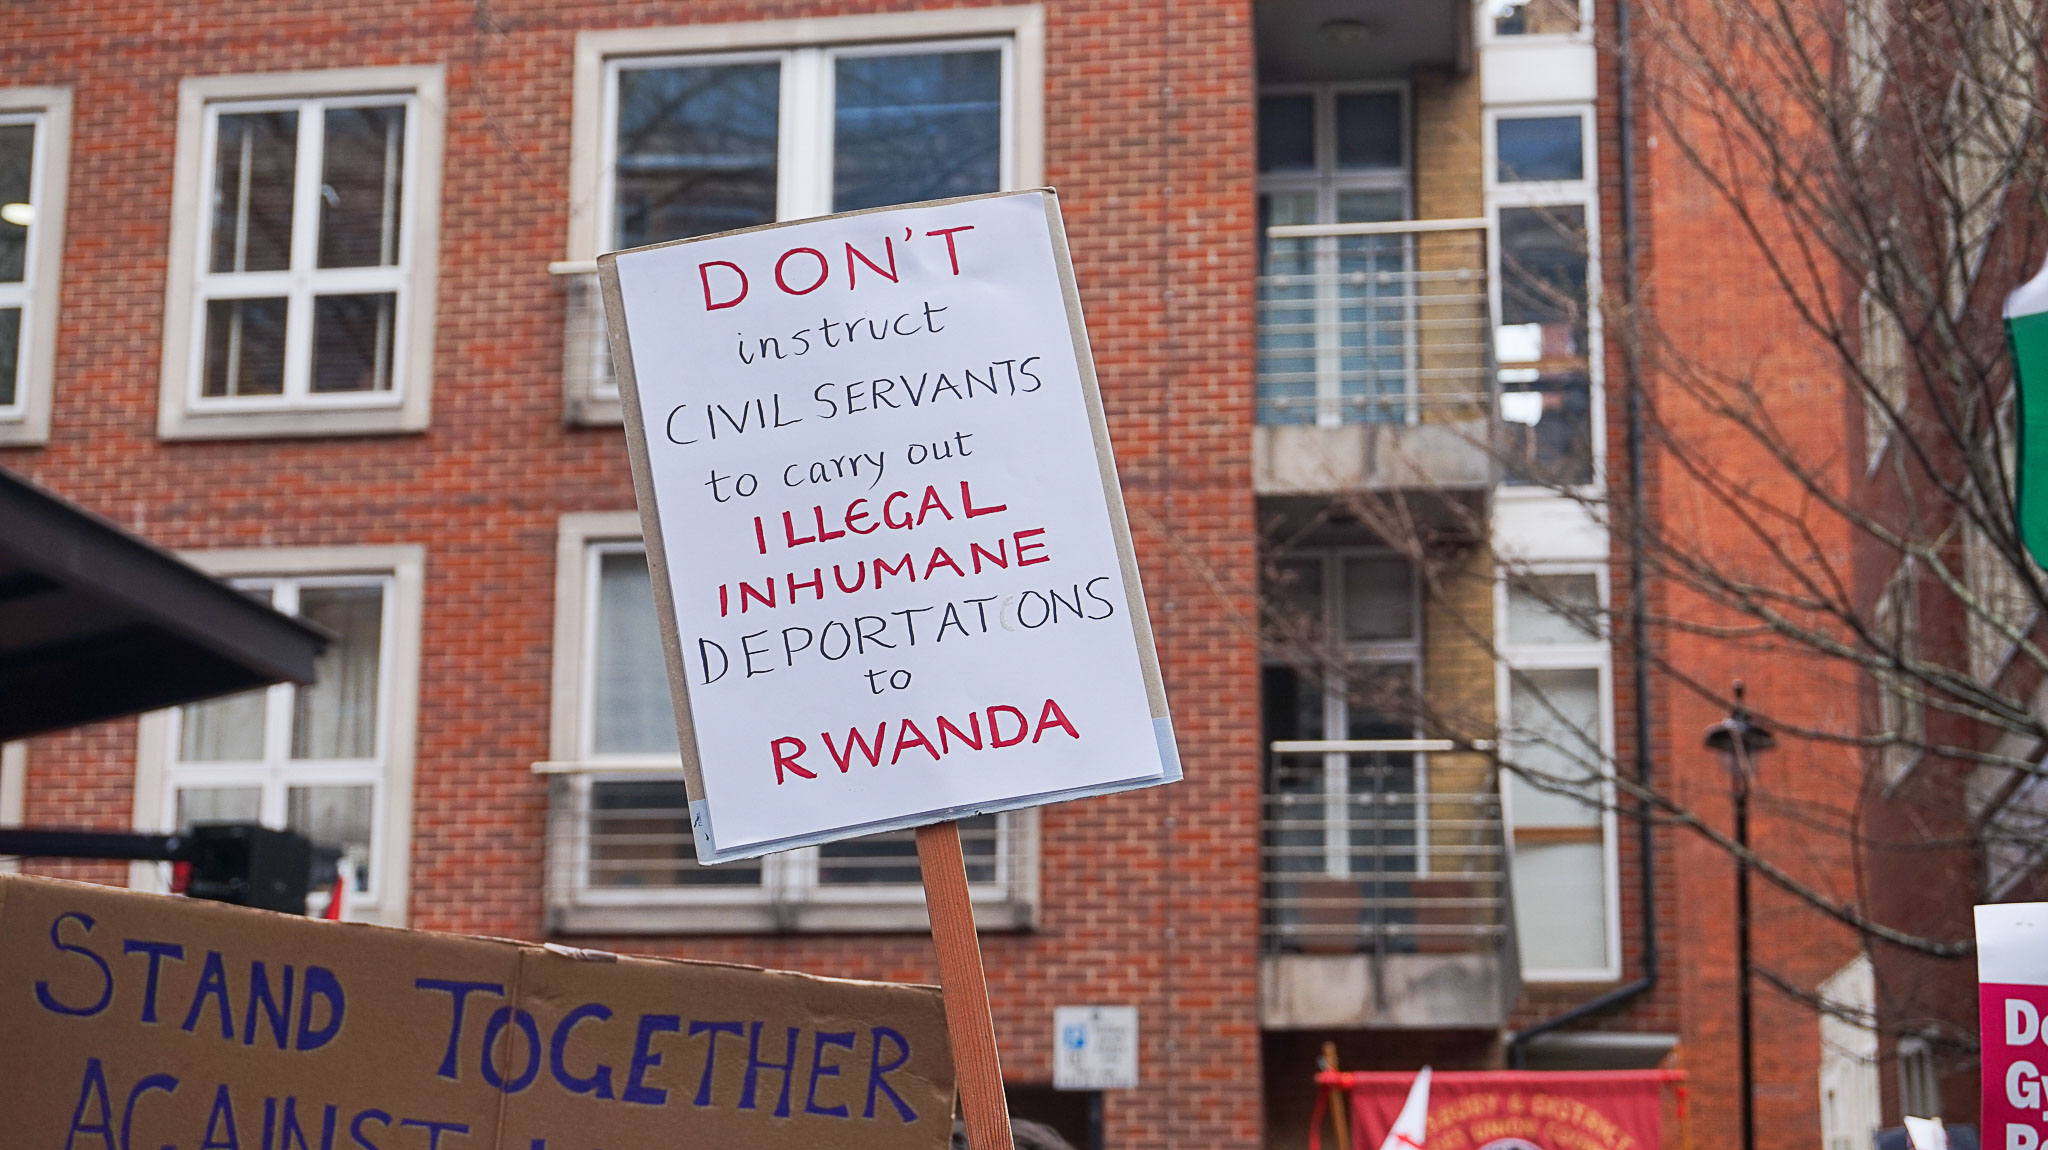 DON'T
instruct
CIVIL SERVANTS
to carry out
ILLEGAL
INHUMANE
DEPORTATIONS
to
RWANDA
STAND TOGETHER
AGAINST
& DISTRICT
UNION